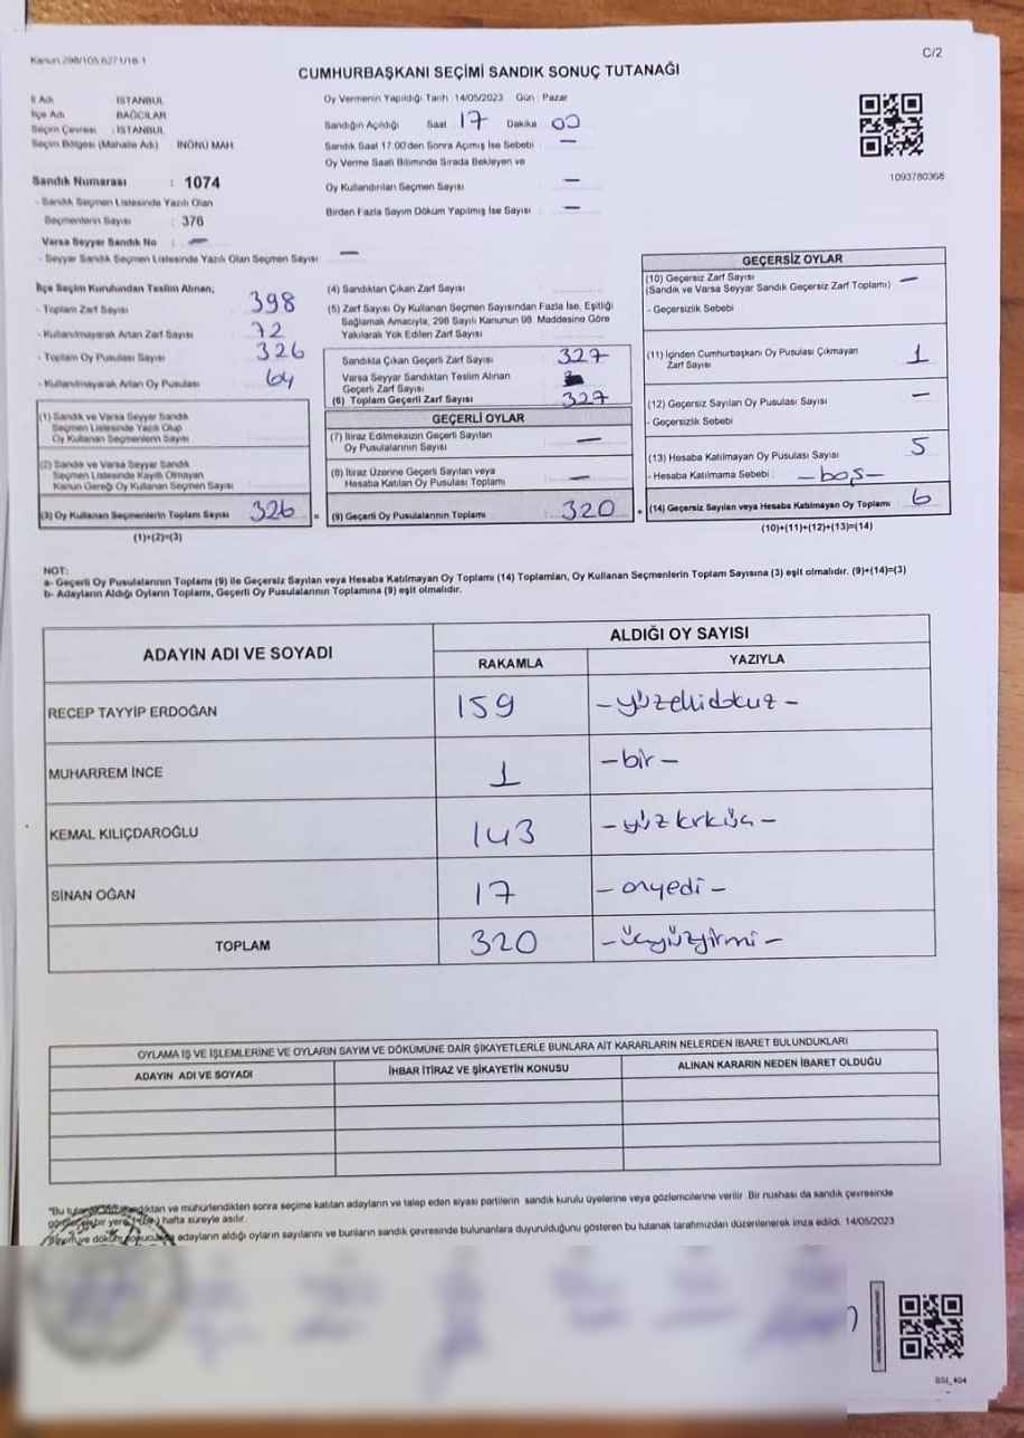 Kanun 298/105.6271/18.1
C/2
CUMHURBAŞKANI SEÇİMİ SANDIK SONUÇ TUTANAĞI
İl Adı : İSTANBUL
İlçe Adı : BAĞCILAR
Seçim Çevresi : İSTANBUL
Seçim Bölgesi (Mahalle Adı) : İNÖNÜ MAH.
Sandık Numarası : 1074
- Sandık Seçmen Listesinde Yazılı Olan
Seçmenlerin Sayısı : 376
Varsa Seyyar Sandık No : —
- Seyyar Sandık Seçmen Listesinde Yazılı Olan Seçmen Sayısı —
Oy Vermenin Yapıldığı Tarih 14/05/2023 Gün : Pazar
Sandığın Açıldığı Saat 17 Dakika 00
Sandık Saat 17.00'den Sonra Açımış İse Sebebi —
Oy Verme Saati Bitiminde Sırada Bekleyen ve
Oy Kullandırılan Seçmen Sayısı —
Birden Fazla Sayım Döküm Yapılmış İse Sayısı —
1093780368
İlçe Seçim Kurulundan Teslim Alınan;
- Toplam Zarf Sayısı 398
- Kullanılmayarak Artan Zarf Sayısı 72
- Toplam Oy Pusulası Sayısı 326
- Kullanılmayarak Artan Oy Pusulası 64
(1) Sandık ve Varsa Seyyar Sandık
Seçmen Listesinde Yazılı Olup
Oy Kullanan Seçmenlerin Sayısı
(2) Sandık ve Varsa Seyyar Sandık
Seçmen Listesinde Kayıtlı Olmayan
Kanun Gereği Oy Kullanan Seçmen Sayısı
(3) Oy Kullanan Seçmenlerin Toplam Sayısı 326
(1)+(2)=(3)
(4) Sandıktan Çıkan Zarf Sayısı
(5) Zarf Sayısı Oy Kullanan Seçmen Sayısından Fazla İse, Eşitliği
Sağlamak Amacıyla, 298 Sayılı Kanunun 98. Maddesine Göre
Yakılarak Yok Edilen Zarf Sayısı
Sandıkta Çıkan Geçerli Zarf Sayısı 327
Varsa Seyyar Sandıktan Teslim Alınan
Geçerli Zarf Sayısı
(6) Toplam Geçerli Zarf Sayısı 327
GEÇERLİ OYLAR
(7) İtiraz Edilmeksizin Geçerli Sayılan
Oy Pusulalarının Sayısı —
(8) İtiraz Üzerine Geçerli Sayılan veya
Hesaba Katılan Oy Pusulası Toplamı —
= (9) Geçerli Oy Pusulalarının Toplamı 320
GEÇERSİZ OYLAR
(10) Geçersiz Zarf Sayısı —
(Sandık ve Varsa Seyyar Sandık Geçersiz Zarf Toplamı)
- Geçersizlik Sebebi
(11) İçinden Cumhurbaşkanı Oy Pusulası Çıkmayan
Zarf Sayısı 1
(12) Geçersiz Sayılan Oy Pusulası Sayısı —
- Geçersizlik Sebebi
(13) Hesaba Katılmayan Oy Pusulası Sayısı 5
- Hesaba Katılmama Sebebi — boş —
+ (14) Geçersiz Sayılan veya Hesaba Katılmayan Oy Toplamı 6
(10)+(11)+(12)+(13)=(14)
NOT:
a- Geçerli Oy Pusulalarının Toplamı (9) ile Geçersiz Sayılan veya Hesaba Katılmayan Oy Toplamı (14) Toplamları, Oy Kullanan Seçmenlerin Toplam Sayısına (3) eşit olmalıdır. (9)+(14)=(3)
b- Adayların Aldığı Oyların Toplamı, Geçerli Oy Pusulalarının Toplamına (9) eşit olmalıdır.
ADAYIN ADI VE SOYADI
ALDIĞI OY SAYISI
RAKAMLA YAZIYLA
RECEP TAYYİP ERDOĞAN 159 - yüzellidokuz -
MUHARREM İNCE 1 - bir -
KEMAL KILIÇDAROĞLU 143 - yüzkırküç -
SİNAN OĞAN 17 - onyedi -
TOPLAM 320 - üçyüzyirmi -
OYLAMA İŞ VE İŞLEMLERİNE VE OYLARIN SAYIM VE DÖKÜMÜNE DAİR ŞİKAYETLERLE BUNLARA AİT KARARLARIN NELERDEN İBARET BULUNDUKLARI
ADAYIN ADI VE SOYADI İHBAR İTİRAZ VE ŞİKAYETİN KONUSU ALINAN KARARIN NEDEN İBARET OLDUĞU
"Bu ve mühürlendikten sonra seçime katılan adayların ve talep eden siyasi partilerin sandık kurulu üyelerine veya gözlemcilerine verilir. Bir nüshası da sandık çevresinde
bir yere hafta süreyle asılır.
adayların aldığı oyların sayılarını ve bunların sandık çevresinde bulunanlara duyurulduğunu gösteren bu tutanak tarafımızdan düzenlenerek imza edildi. 14/05/2023